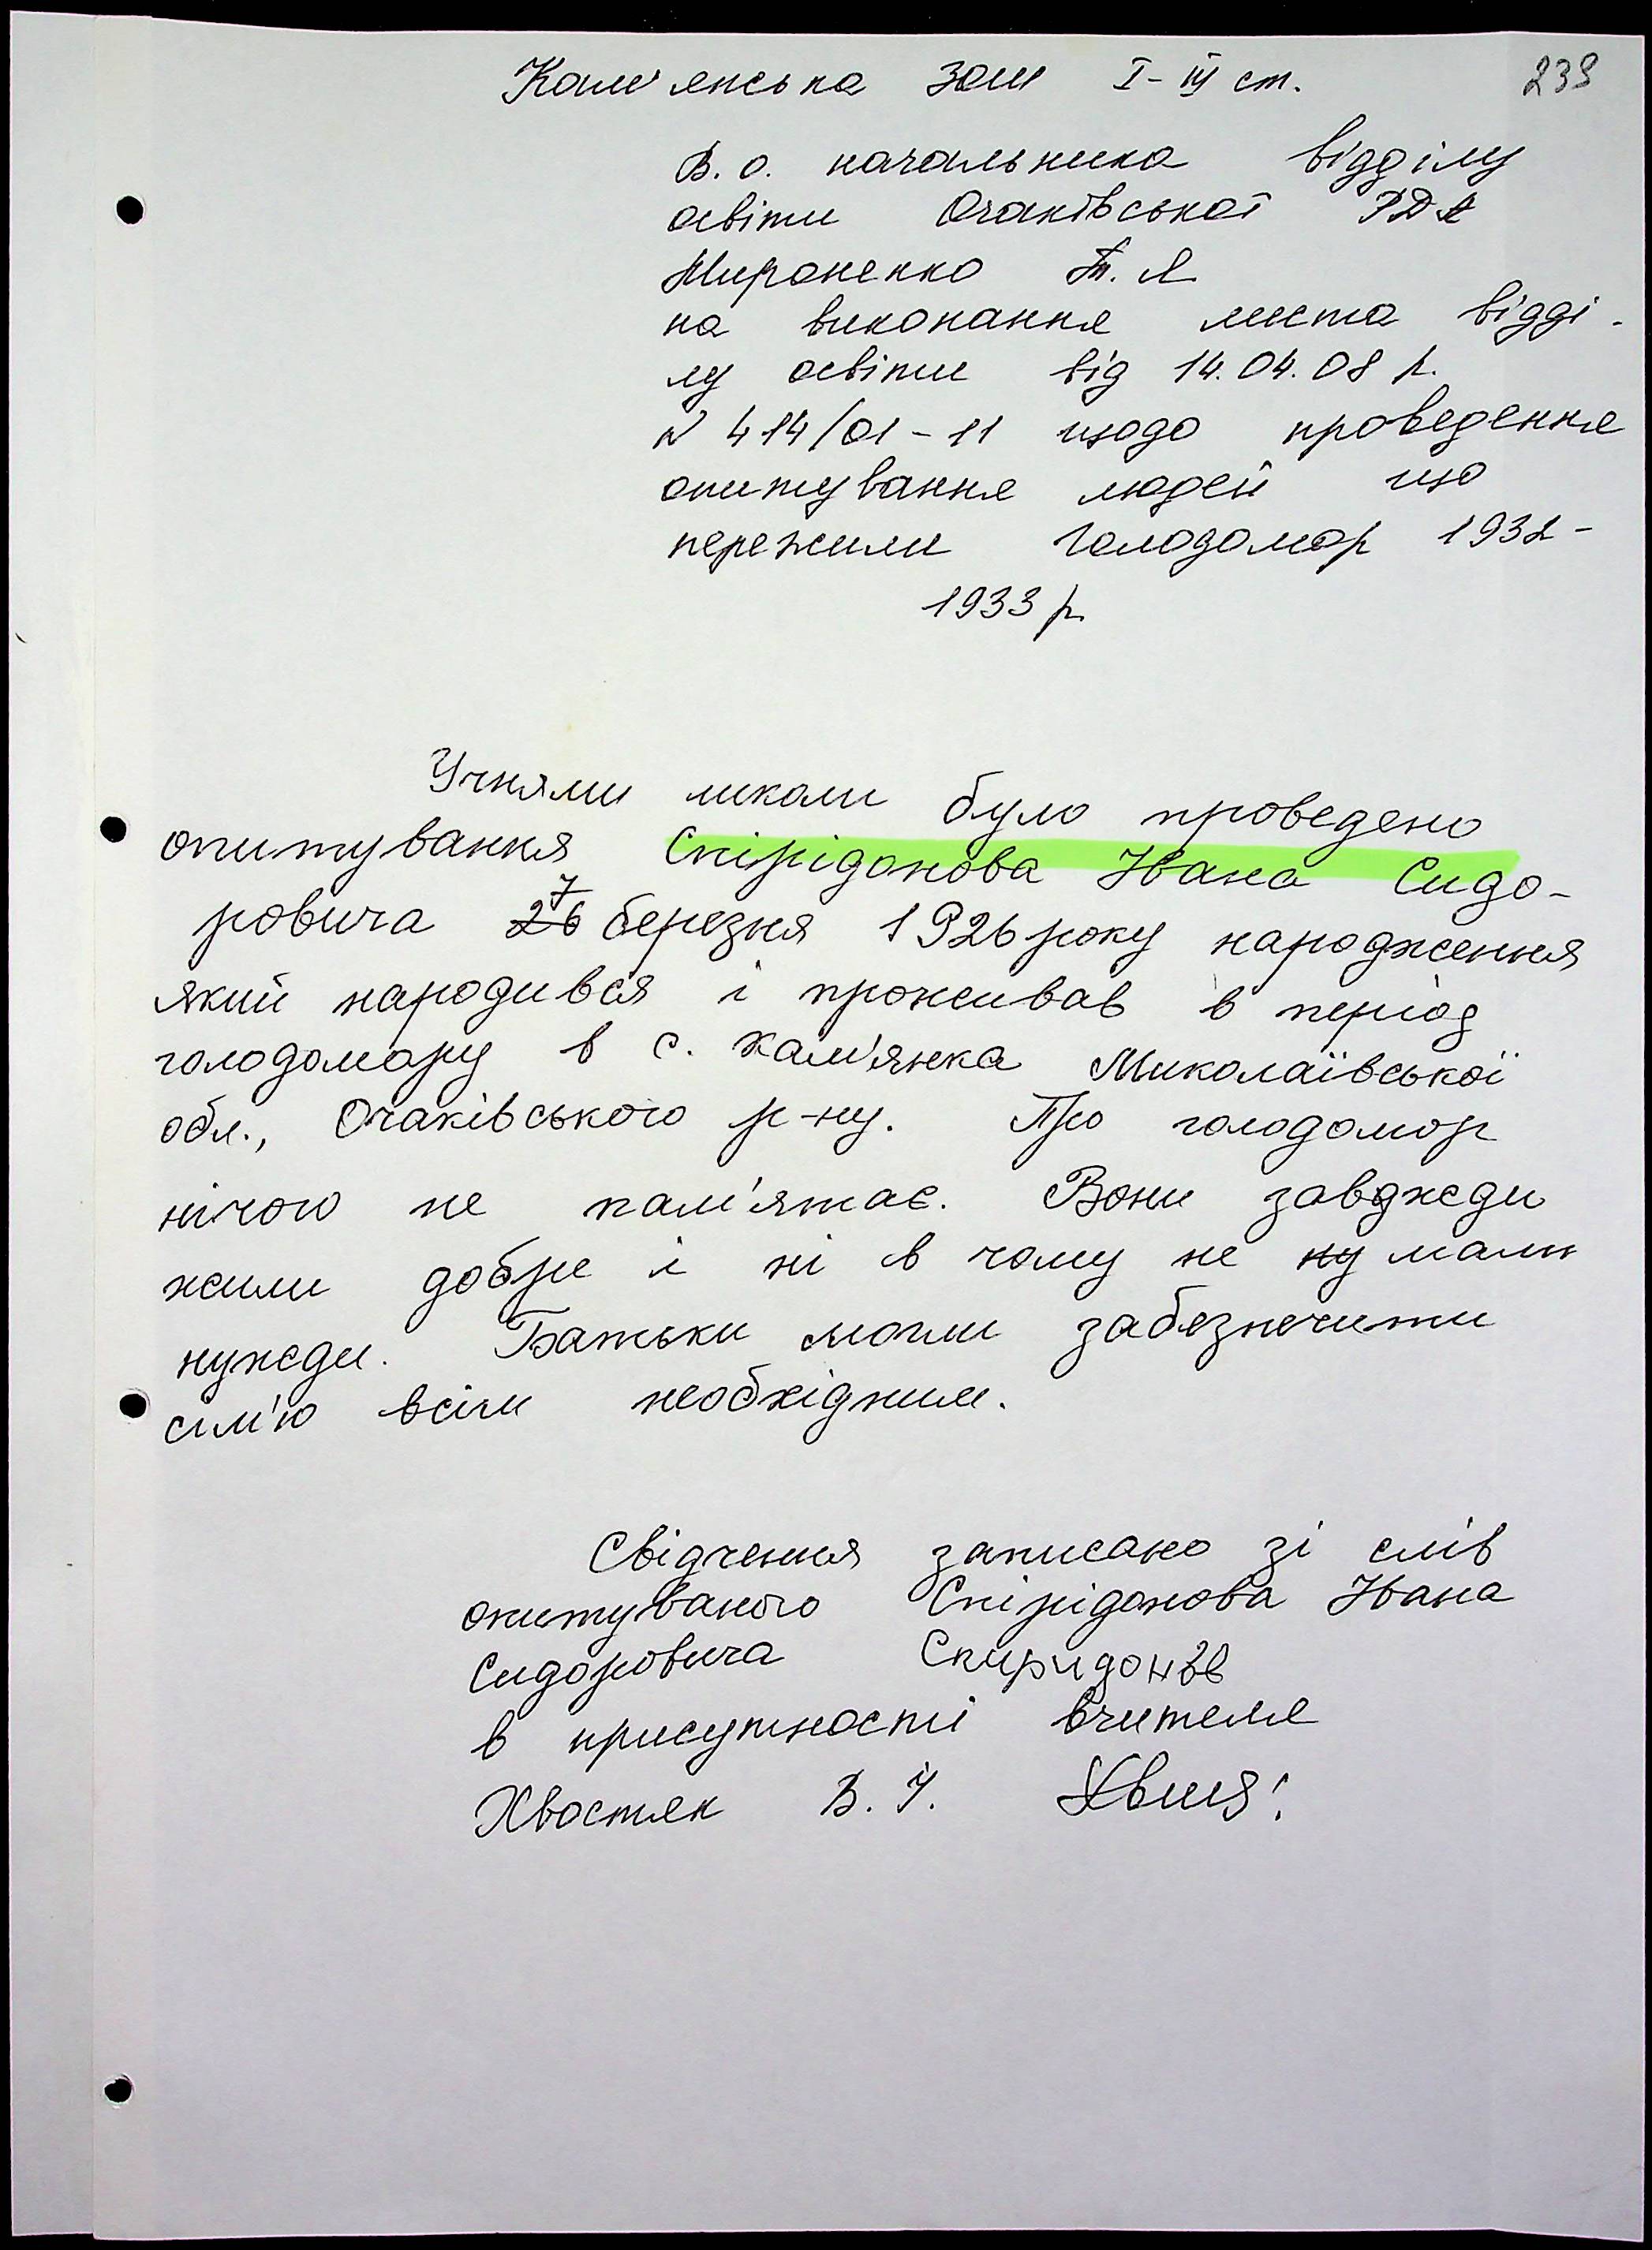 Кам'янська зош I-III ст. 239
В. о. начальника відділу
освіти Очаківської РДА
Мироненко Т. Я.
на виконання листа відді-
лу освіти від 14.04.08 р.
N 414/01-11 щодо проведення
опитування людей що
пережили голодомор 1932-
1933 р.
Учнями школи було проведено
опитування Спірідонова Івана Сидо-
ровича 7 березня 1926 року народження
який народився і проживав в період
голодомору в с. Кам'янка Миколаївської
обл., Очаківського р-ну. Про голодомор
нічого не пам'ятає. Вони завджди
жили добре і ні в чому не ну мали
нужди. Батьки могли забезпечити
сім'ю всім необхідним.
Свідчення записано зі слів
опитуваного Спірідонова Івана
Сидоровича Спиридонов
в присутності вчителя
Хвостяк В. І.